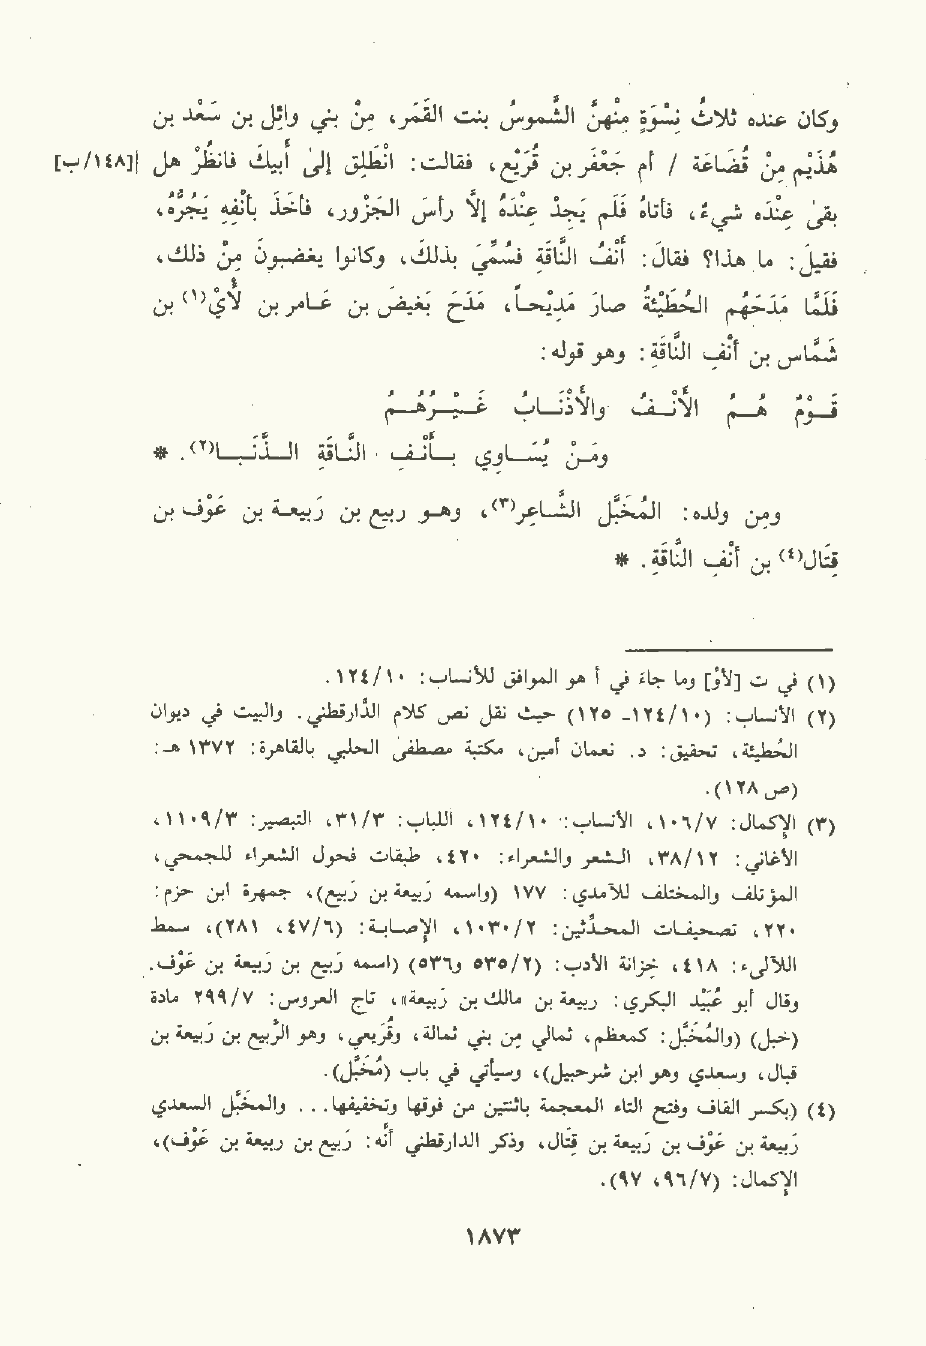 وكان عنده ثلاثُ نِسْوَةٍ مِنْهُنَّ الشَّمُوسُ بنت القَمَر، مِنْ بني وائِل بن سَعْد بن
هُذَيْم مِنْ قُضَاعَة / أم جَعْفَر بن قُرَيْع، فقالت: انْطَلِق إلى أبيكَ فانظُرْ هل [١٤٨/ب]
بقيَ عِنْدَه شيء، فأتاهُ فَلَم يَجدْ عِنْدَهُ إلاَّ رأسَ الجَزُور، فأخَذَ بأنْفِه يَجُرُّه،
فقيلَ: ما هذا؟ فقالَ: أنْفُ النَّاقَة فسُمِّيَ بذلكَ، وكانوا يغضبُونَ مِنْ ذلك،
فَلَمَّا مَدَحَهُم الحُطَيْئَةُ صارَ مَدْيحاً، مَدَحَ بَغيضَ بن عَامر بن لأْي(١) بن
شَمَّاس بن أنْفِ النَّاقَة: وهو قوله:
قَوْمٌ هُمُ الأنْفُ والأذْنَابُ غَيْرُهُمُ
ومَنْ يُسَاوي بأنْفِ النَّاقَةِ الذَّنَبا(٢). *
ومِن ولده: المُخَبَّل الشَّاعِر(٣)، وهو ربيع بن رَبيعة بن عَوْف بن
قِتَال(٤) بن أنْفِ النَّاقَةِ. *
(١) في ت [لأو] وما جاءَ في أ هو الموافق للأنساب: ١٠/ ١٢٤.
(٢) الأنساب: (١٠/ ١٢٤- ١٢٥) حيث نقل نص كلام الدَّارقطني. والبيت في ديوان
الحُطيئة، تحقيق: د. نعمان أمين، مكتبة مصطفىٰ الحلبي بالقاهرة: ١٣٧٢ هـ:
(ص ١٢٨).
(٣) الإكمال: ٧/ ١٠٦، الأنساب: ١٠/ ١٢٤، اللباب: ٣/ ٣١، التبصير: ٣/ ١١٠٩،
الأغاني: ١٢/ ٣٨، الشعر والشعراء: ٤٢٠، طبقات فحول الشعراء للجمحي،
المؤتلف والمختلف للآمدي: ١٧٧ (واسمه رَبيعة بن رَبيع)، جمهرة ابن حزم:
٢٢٠، تصحيفات المحدِّثين: ٢/ ١٠٣٠، الإصابة: (٦/ ٤٧، ٢٨١)، سمط
اللآلىء: ٤١٨، خزانة الأدب: (٢/ ٥٣٥ و٥٣٦) (اسمه رَبيع بن رَبيعة بن عَوْف.
وقال أبو عُبَيْد البكري: ربيعة بن مالك بن رَبيعة»، تاج العروس: ٧/ ٢٩٩ مادة
(خبل) (والمُخَبَّل: كمعظم، ثمالي من بني ثمالة، وقُرَيعي، وهو الرَّبيع بن رَبيعة بن
قبال، وسعدي وهو ابن شرحبيل)، وسيأتي في باب (مُخَبَّل).
(٤) (بكسر القاف وفتح التاء المعجمة باثنتين من فوقها وتخفيفها... والمخَبَّل السعدي
رَبيعة بن عَوف بن رَبيعة بن قِتال، وذكر الدارقطني أنَّه: رَبيع بن ربيعة بن عَوْف)،
الإكمال: (٧/ ٩٦، ٩٧).
١٨٧٣